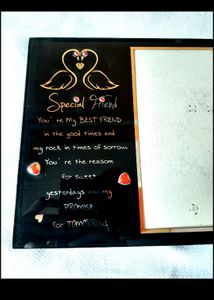 Special Friend
You're My BEST FRIEND
in the good times and
my rock in times of sorrow
You're the reason
for sweet
yesterdays and my
for TOMORROW